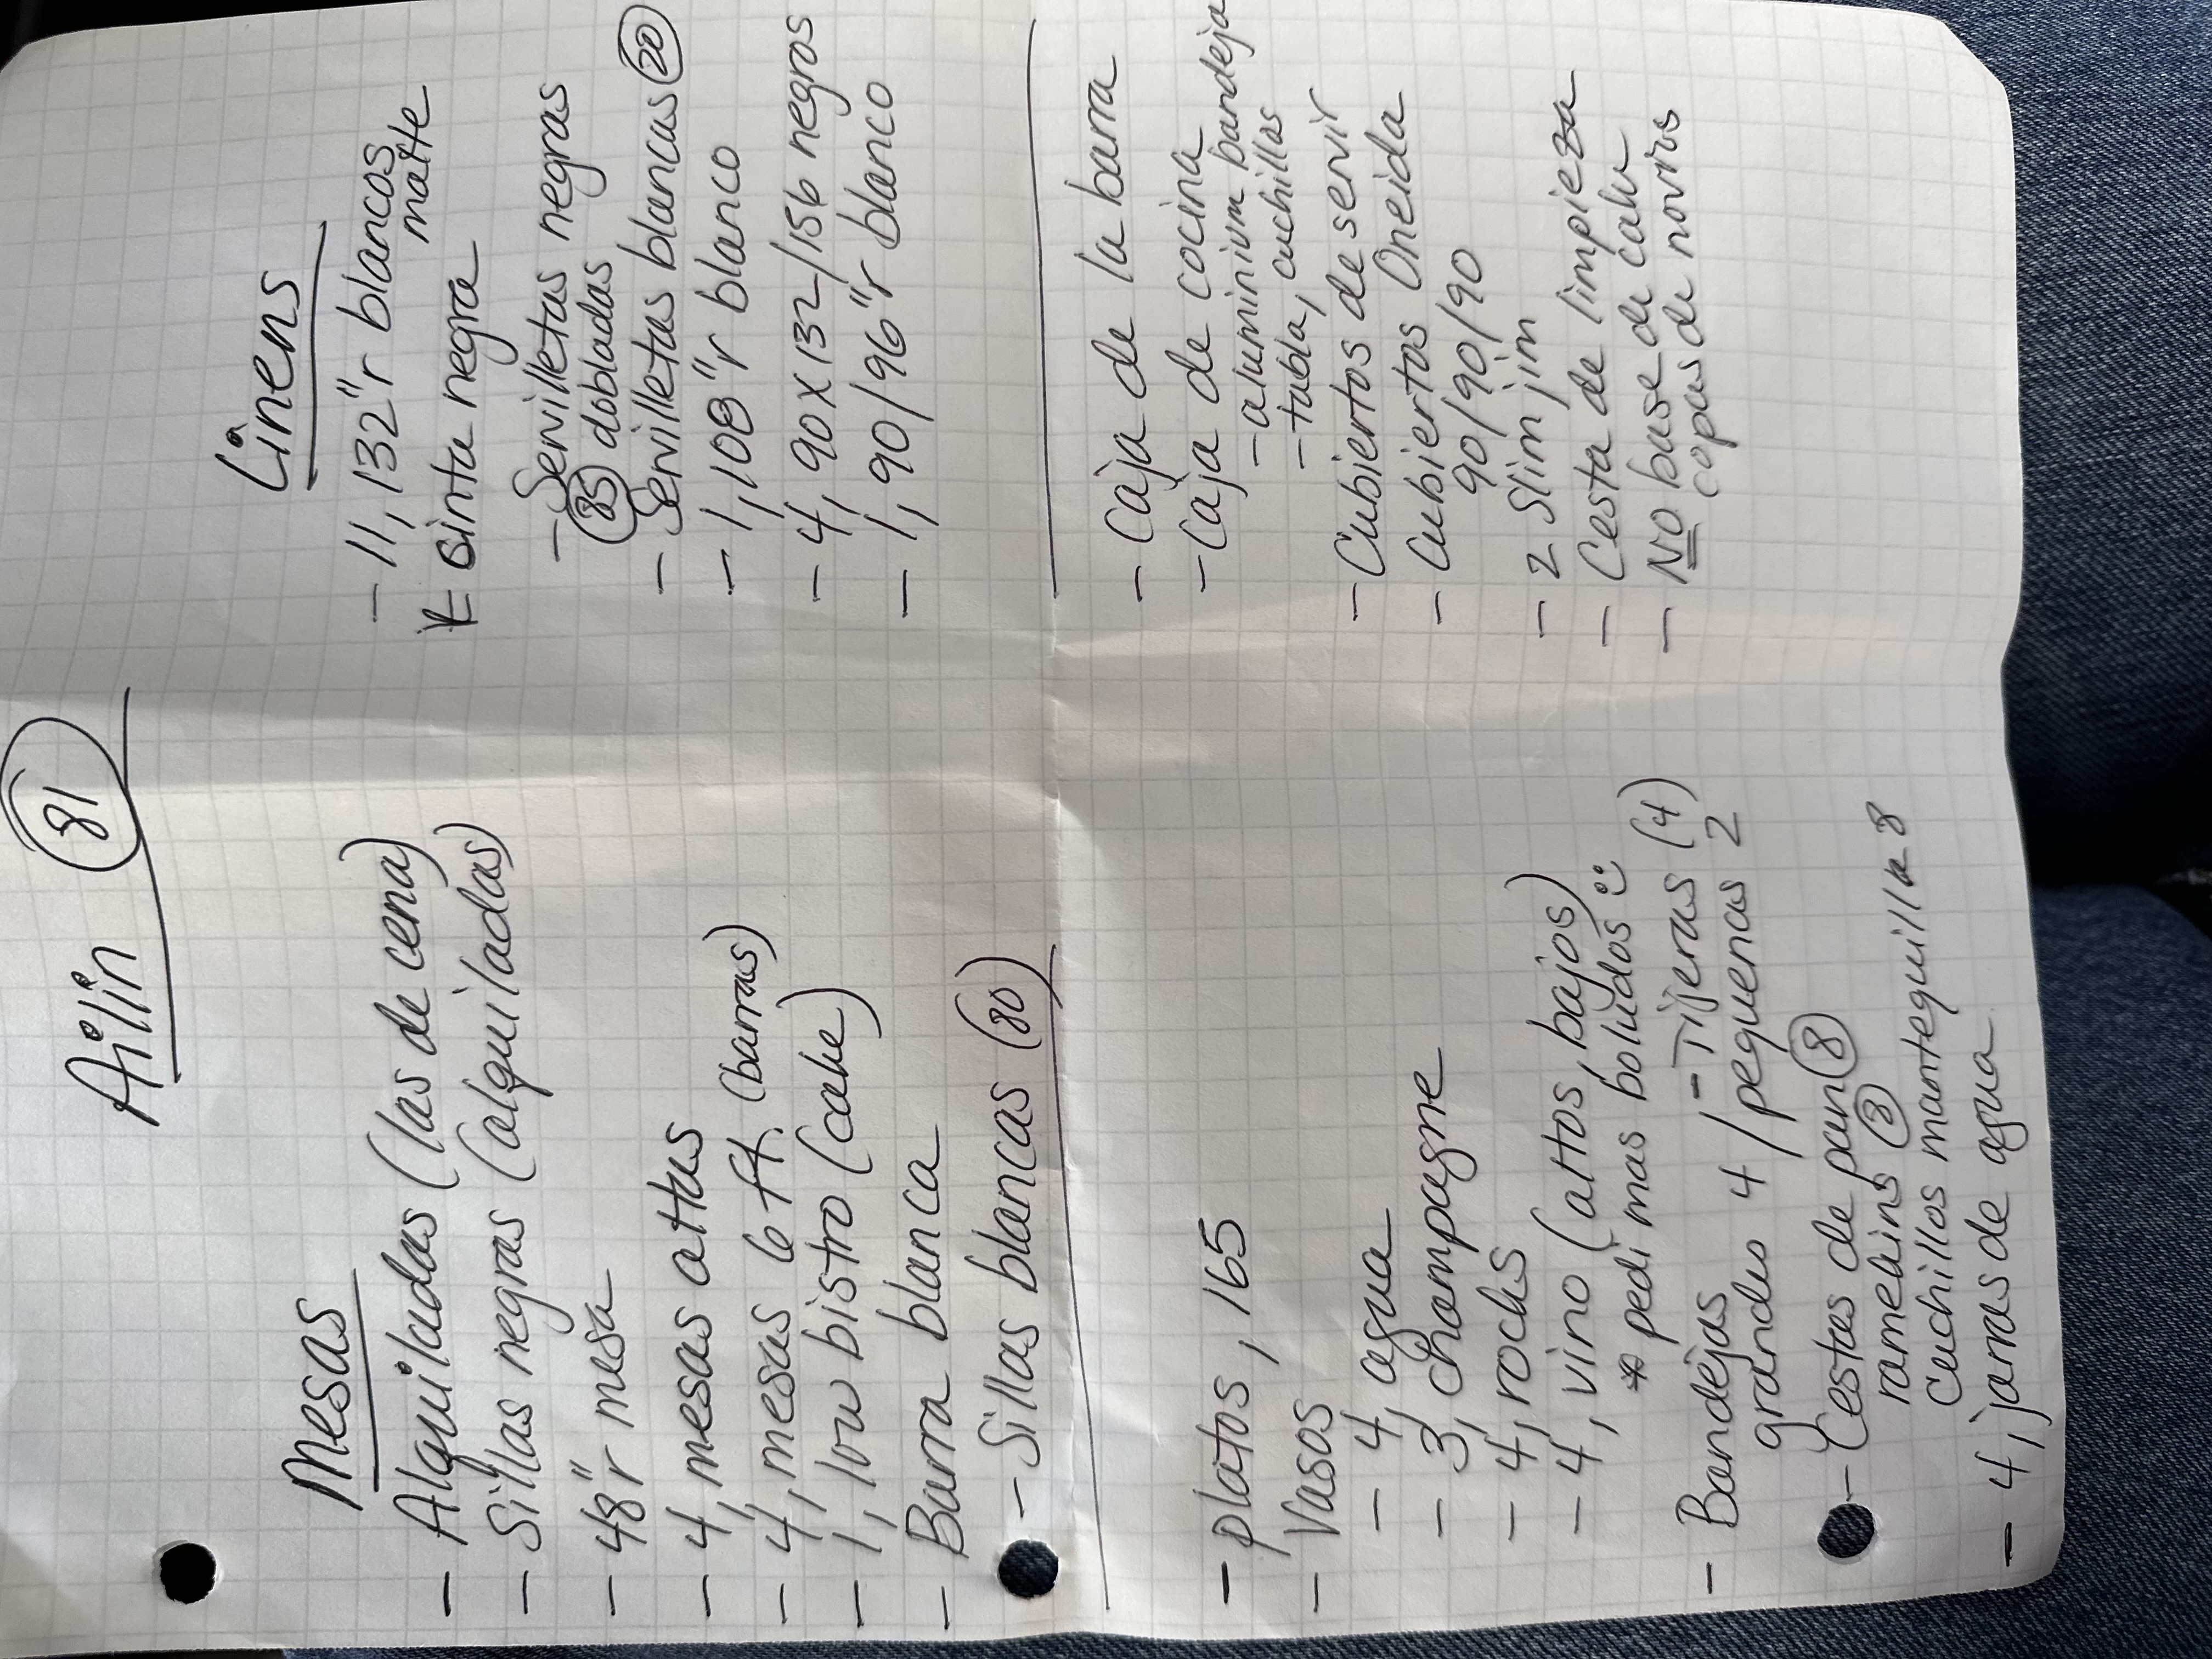 Ailin 81
Mesas
- Alquiladas (las de cena)
- Sillas negras (alquiladas)
- 48"r mesa
- 4, mesas altas
- 4, mesas 6 ft. (barras)
- 1, low bistro (cake)
- Barra blanca
- Sillas blancas (80)
Linens
- 11, 132"r blancos
matte
- sinta negra
- Servilletas negras
85 dobladas
- Servilletas blancas 20
- 1, 108"r blanco
- 4, 90x132/156 negros
- 1, 90/96"r blanco
- platos, 165
- Vasos
- 4, agua
- 3, champagne
- 4, rocks
- 4, vino (altos, bajos)
* pedi mas boludos
- Bandejas
grandes 4 / pequenas 2
- Tijeras (4)
- Cestas de pan 8
ramekins 8
Cuchillos mantequilla 8
- 4, jarras de agua
- Caja de la barra
- Caja de cocina
- aluminium bandeja
- tabla, cuchillas
- Cubiertos de servir
- Cubiertos Oneida
90/90/90
- 2 Slim jim
- Cesta de limpieza
- NO base de cake
copas de novios